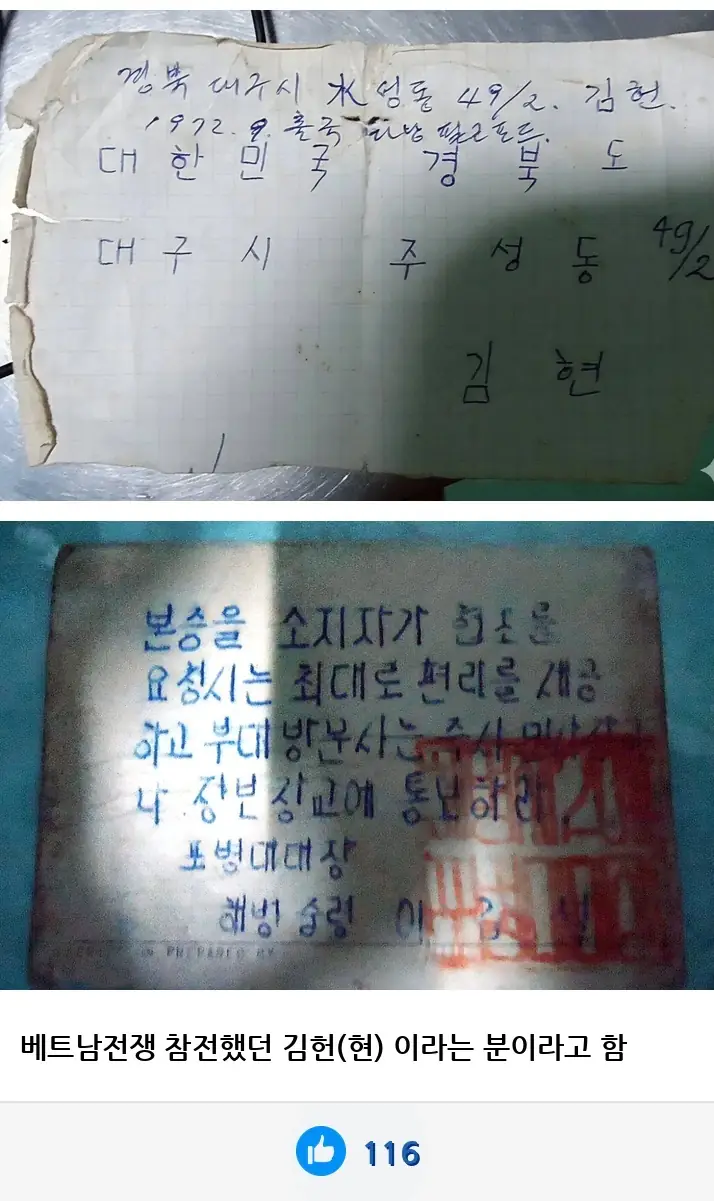 경북 대구시 水성동 49/2. 김헌.
1972. 9. 출국 다낭 필코포드.
대한민국 경북도
대구시 주성동 49/2
김현
본증을 소지자가 협조를
요청시는 최대로 편리를 제공
하고 부대방문시는 즉시
나 정보장교에 통보하라.
포병대대장
해병 중령 이
PREPARED BY
베트남전쟁 참전했던 김헌(현) 이라는 분이라고 함
116